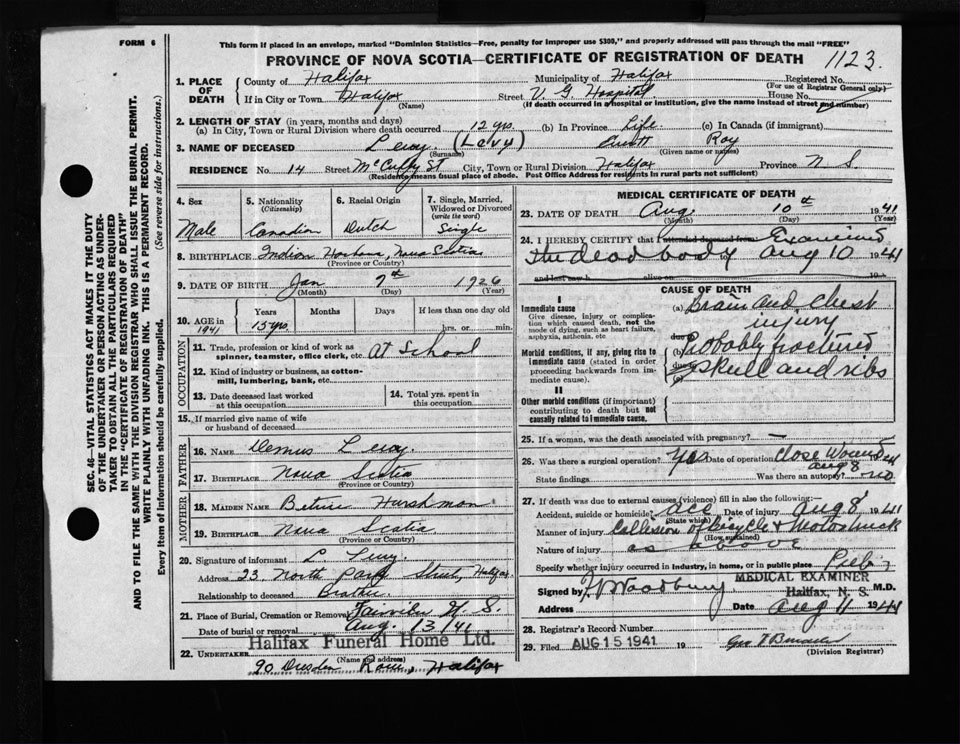 FORM 6
This form if placed in an envelope, marked "Dominion Statistics—Free, penalty for improper use $300," and properly addressed will pass through the mail "FREE"
PROVINCE OF NOVA SCOTIA—CERTIFICATE OF REGISTRATION OF DEATH 1123
1. PLACE OF DEATH County of Halifax Municipality of Halifax Registered No. (For use of Registrar General only)
If in City or Town Halifax (Name) Street V. G. Hospital House No.
(If death occurred in a hospital or institution, give the name instead of street and number)
2. LENGTH OF STAY (in years, months and days)
(a) In City, Town or Rural Division where death occurred 12 yrs. (b) In Province Life (c) In Canada (if immigrant)
3. NAME OF DECEASED Levy (Levy) Roy
(Surname) (Given name or names)
RESIDENCE No. 14 Street St City, Town or Rural Division Halifax Province N S
(Residence means usual place of abode. Post Office Address for residents in rural parts not sufficient)
4. Sex Male
5. Nationality (Citizenship) Canadian
6. Racial Origin Dutch
7. Single, Married, Widowed or Divorced (write the word) Single
8. BIRTHPLACE Indian Harbour, Nova Scotia
(Province or Country)
9. DATE OF BIRTH Jan 9th 1926
(Month) (Day) (Year)
10. AGE in 1941 Years Months Days If less than one day old
15 yrs. hrs. or min.
OCCUPATION
11. Trade, profession or kind of work as spinner, teamster, office clerk, etc. At School
12. Kind of industry or business, as cotton-mill, lumbering, bank, etc.
13. Date deceased last worked at this occupation
14. Total yrs. spent in this occupation
15. If married give name of wife or husband of deceased
FATHER
16. NAME Levy
17. BIRTHPLACE Nova Scotia
(Province or Country)
MOTHER
18. MAIDEN NAME Harshman
19. BIRTHPLACE Nova Scotia
(Province or Country)
20. Signature of informant L. Levy
Address 23 North Park Street, Halifax
Relationship to deceased Brother
21. Place of Burial, Cremation or Removal Fairview N. S.
Date of burial or removal Aug. 13/41
22. UNDERTAKER Halifax Funeral Home Ltd.
(Name and address)
90 Dresden Row, Halifax
MEDICAL CERTIFICATE OF DEATH
23. DATE OF DEATH Aug 10th 1941
(Month) (Day) (Year)
24. I HEREBY CERTIFY that I attended deceased from Examined
the dead body to aug 10 1941
and last saw h alive on 19
CAUSE OF DEATH
I
Immediate cause
Give disease, injury or complication which caused death, not the mode of dying, such as heart failure, asphyxia, asthenia, etc
(a) Brain and Chest injury
due to
Morbid conditions, if any, giving rise to immediate cause (stated in order proceeding backwards from immediate cause).
(b) Probably fractured
due to
skull and ribs
II
Other morbid conditions (if important) contributing to death but not causally related to immediate cause.
25. If a woman, was the death associated with pregnancy? —
26. Was there a surgical operation? Yes Date of operation aug 8 Close Wound
State findings Was there an autopsy? no
27. If death was due to external causes (violence) fill in also the following:—
Accident, suicide or homicide? acc Date of injury aug 8 1941
(State which)
Manner of injury Collision of Bicycle & Motor truck
(How sustained)
Nature of injury as above
Specify whether injury occurred in industry, in home, or in public place Pub.
Signed by Woodbury MEDICAL EXAMINER M.D.
Halifax, N. S.
Address Date Aug 11 1941
28. Registrar's Record Number
29. Filed AUG 15 1941 19
(Division Registrar)
SEC. 46—VITAL STATISTICS ACT MAKES IT THE DUTY
OF THE UNDERTAKER OR PERSON ACTING AS UNDER-
TAKER TO OBTAIN ALL THE PARTICULARS REQUIRED
IN THE "CERTIFICATE OF REGISTRATION OF DEATH"
AND TO FILE THE SAME WITH THE DIVISION REGISTRAR WHO SHALL ISSUE THE BURIAL PERMIT.
WRITE PLAINLY WITH UNFADING INK. THIS IS A PERMANENT RECORD.
Every item of information should be carefully supplied. (See reverse side for instructions.)